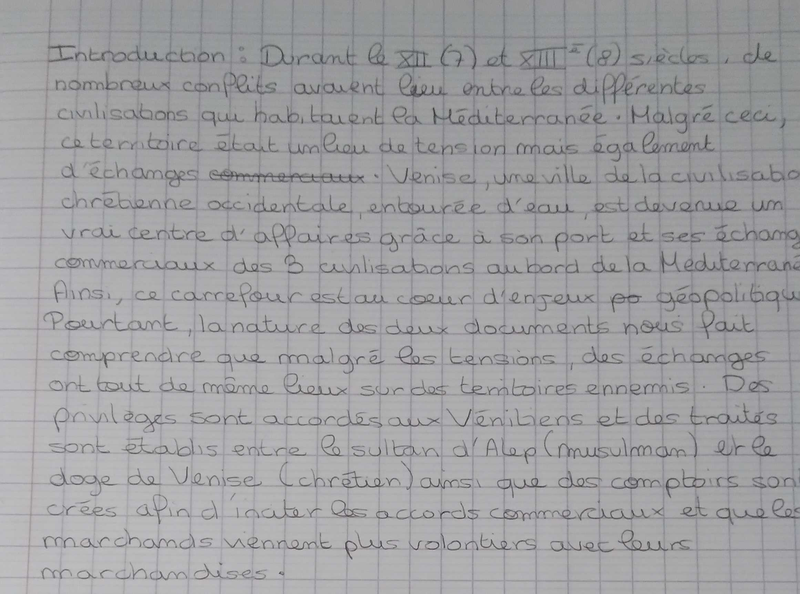 Introduction : Durant le XII (7) et XIII e (8) siècles, de
nombreux conflits avaient lieu entre les différentes
civilisations qui habitaient la Méditerranée. Malgré ceci,
ce territoire était un lieu de tension mais également
d'échanges commerciaux. Venise, une ville de la civilisatio
chrétienne occidentale, entourée d'eau, est devenue un
vrai centre d'affaires grâce à son port et ses échang
commerciaux des 3 civilisations au bord de la Méditerrané
Ainsi, ce carrefour est au coeur d'enjeux po géopolitiqu
Pourtant, la nature des deux documents nous fait
comprendre que malgré les tensions, des échanges
ont tout de même lieux sur des territoires ennemis. Des
privilèges sont accordés aux Vénitiens et des traités
sont établis entre le sultan d'Alep (musulman) et le
doge de Venise (chrétien) ainsi que des comptoirs son
crées afin d'inciter les accords commerciaux et que les
marchands viennent plus volontiers avec leurs
marchandises.